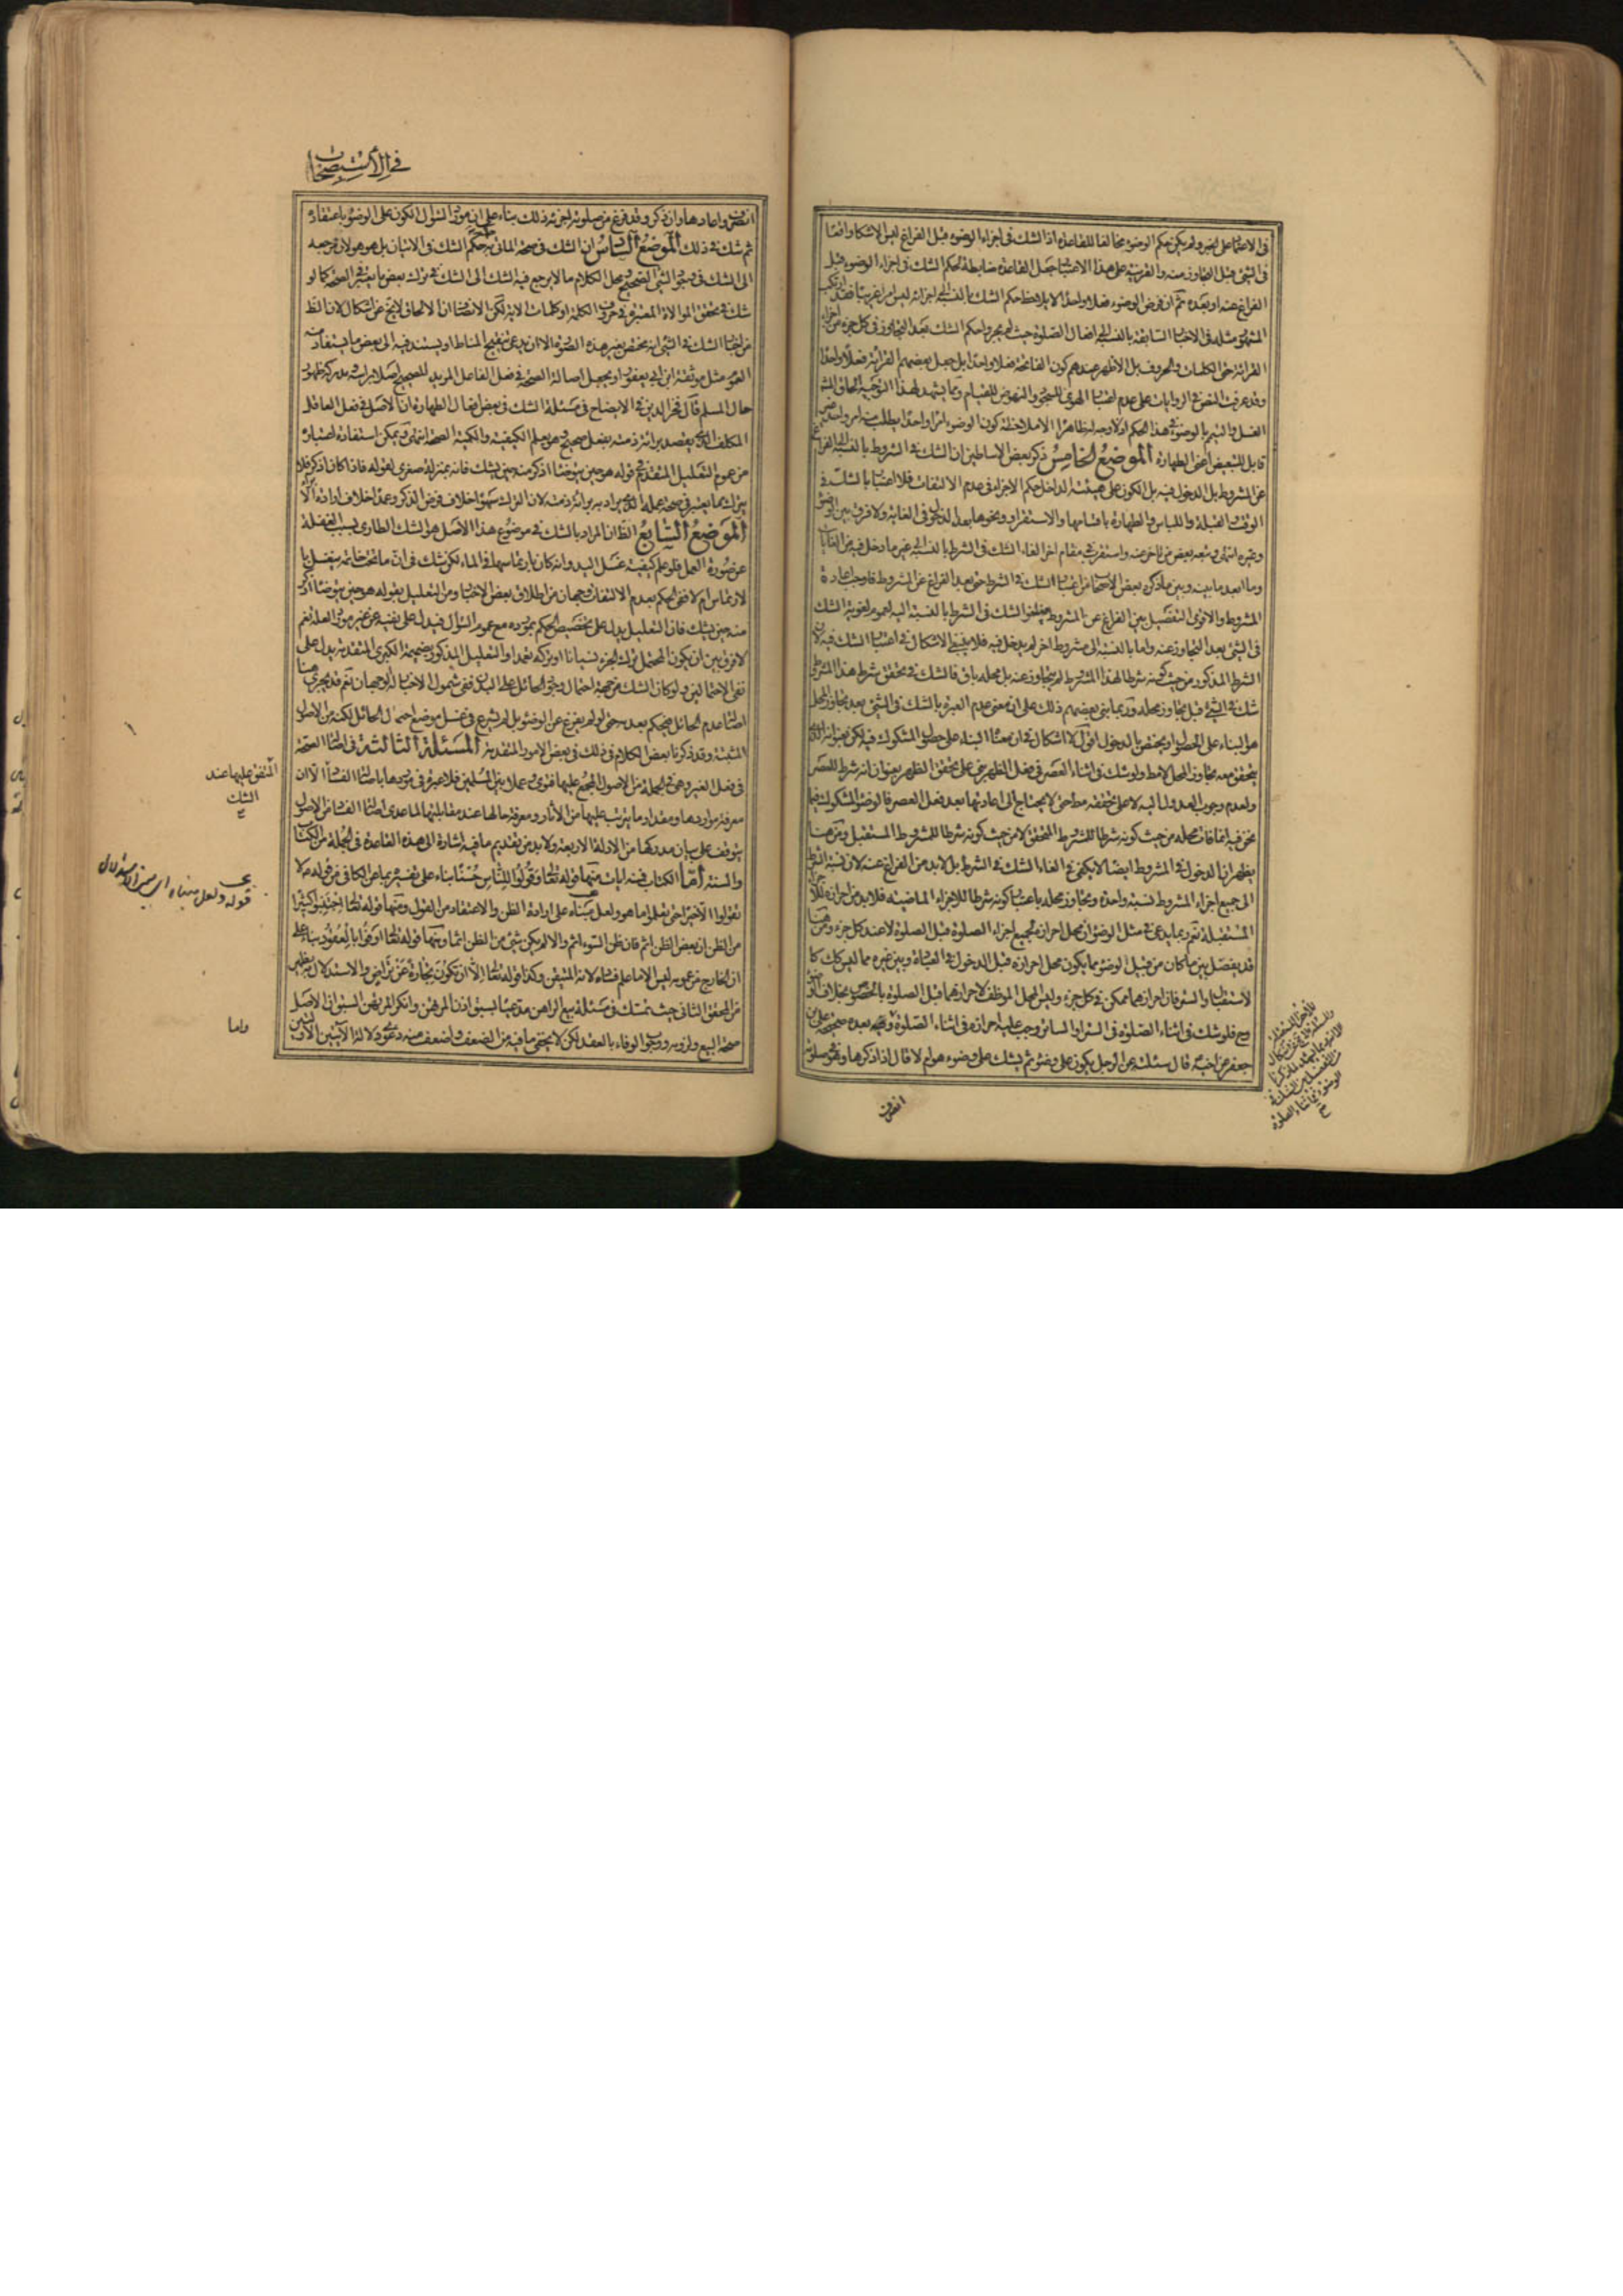 في الاعتماد على الخبر ولم يكن حكم الوضوء مخالفا للقاعدة اذ الشك في اجزاء الوضوء قبل الفراغ ليس الا شكا واقعا
في الشئ قبل التجاوز عنه والقرينة على هذا الاعتبار جعل القاعدة ضابطة لحكم الشك في اجزاء الوضوء قبل
الفراغ عنه او بعده ثم ان فرض الوضوء فعلا واحدا لا يلاحظ حكم الشك بالنسبة الى اجزائه ليس امرا غريبا فقد ارتكب
المشهور مثله في الاخبار السابقة بالنسبة الى افعال الصلوة حيث لم يجروا حكم الشك بعد التجاوز في كل جزء من اجزاء
القرائة حتى الكلمات والحروف بل الاظهر عندهم كون الفاتحة فعلا واحدا بل جعل بعضهم القرائة فعلا واحدا
وقد عرفت النص في الروايات على عدم اعتبار الهوى للسجود والنهوض للقيام ومما يشهد لهذا التوجيه الحاق المشهور
الغسل والتيمم بالوضوء في هذا الحكم اذ لا وجه له ظاهرا الا ملاحظة كون الوضوء امرا واحدا يطلب منه امر واحد غير
قابل للتبعيض اعنى الطهارة الموضع الخامس ذكر بعض الاساطين ان الشك في الشروط بالنسبة الى الفراغ
عن المشروط بل الدخول فيه بل الكون على هيئة الداخل حكم الاجزاء في عدم الالتفات فلا اعتبار بالشك في
الوقت والقبلة واللباس والطهارة باقسامها والاستقرار ونحوها بعد الدخول في الغاية ولا فرق بين الوضوء
وغيره انتهى وتبعه بعض من تاخر عنه واستقرب في مقام اخر الغاء الشك في الشرط بالنسبة الى غير ما دخل فيه من الغايات
وما ابعد ما بينه وبين ما ذكره بعض الاصحاب من اعتبار الشك في الشرط حتى بعد الفراغ عن المشروط فاوجب اعادة
المشروط والاقوى التفصيل بين الفراغ عن المشروط فيلغو الشك في الشرط بالنسبة اليه لعموم لغوية الشك
في الشئ بعد التجاوز عنه واما بالنسبة الى مشروط اخر لم يدخل فيه فلا ينبغي الاشكال في اعتبار الشك فيه لان
الشرط المذكور من حيث كونه شرطا لهذا المشروط لم يتجاوز عنه بل محله باق فالشك في تحقق شرط هذا المشروط
شك في الشئ قبل تجاوز محله وربما بنى بعضهم ذلك على ان معنى عدم العبرة بالشك في الشئ بعد تجاوز المحل
هو البناء على الحصول او يختص بالدخول اقول لا اشكال في ان معناه البناء على حصول المشكوك فيه لكن بعنوانه الذي
يتحقق معه تجاوز المحل لا مط ولو شك في اثناء العصر في فعل الظهر بنى على تحقق الظهر بعنوان انه شرط للعصر
ولعدم وجوب العدول اليه لا على تحققه مط حتى لا يحتاج الى اعادتها بعد فعل العصر فالوضوء المشكوك فيما
نحن فيه انما فات محله من حيث كونه شرطا للمشروط المتحقق لا من حيث كونه شرطا للمشروط المستقبل ومن هنا
يظهر ان الدخول في المشروط ايضا لا يكفي في الغاء الشك في الشرط بل لا بد من الفراغ عنه لان نسبة الشرط
الى جميع اجزاء المشروط نسبة واحدة وتجاوز محله باعتبار كونه شرطا للاجزاء الماضية فلا بد من احرازه للاجزاء
المستقبلة نعم ربما يدعى في مثل الوضوء ان محل احرازه لجميع اجزاء الصلوة قبل الصلوة لا عند كل جزء ومن هنا
قد يفصل بين ما كان من قبيل الوضوء مما يكون محل احرازه قبل الدخول في العبادة وبين غيره مما ليس كك كا
لاستقبال والستر فان احرازهما ممكن في كل جزء وليس المحل الموظف لاحرازهما قبل الصلوة بالخصوص بخلاف الوضوء
وح فلو شك في اثناء الصلوة في الستر او الساتر وجب عليه احرازه في اثناء الصلوة لما بعده صحيحة على بن
جعفر عن اخيه قال سئلته عن الرجل يكون على وضوء ثم يشك على وضوء هو ام لا قال اذا ذكرها وهو في صلوته
انصرف
في الاستصحاب
انصرف واعادها وان ذكر وقد فرغ من صلوته اجزئه ذلك بناء على ان مورد السؤال الكون على الوضوء باعتقاده
ثم شك في ذلك الموضع السادس ان الشك في صحة الماتى به حكمه حكم الشك في الاتيان بل هو هو لان مرجعه
الى الشك في وجود الشئ الصحيح ومحل الكلام ما لا يرجع فيه الشك الى الشك في ترك بعض ما يعتبر في الصحة كما لو
شك في تحقق الموالاة المعتبرة في حروف الكلمة او كلمات الاية لكن الانصاف ان الالحاق لا يخ عن اشكال لان الظ
من اخبار الشك في الشئ انه مختص بغير هذه الصورة الا ان يدعى تنقيح المناط او يستند فيه الى بعض ما يستفاد منه
العموم مثل موثقة ابن ابي يعفور او يجعل اصالة الصحة في فعل الفاعل المريد للصحيح اصلا براسه ومدركه ظهور
حال المسلم قال فخر الدين في الايضاح في مسئلة الشك في بعض افعال الطهارة ان الاصل في فعل العاقل
المكلف الذي يقصد برائة ذمته بفعل صحيح وهو يعلم الكيفية والكمية الصحة انتهى ويمكن استفادة اعتباره
من عموم التعليل المتقدم في قوله هو حين يتوضأ اذكر منه حين يشك فانه بمنزلة صغرى لقوله فاذا كان اذكر فلا
يترك ما يعتبر في صحة عمله الذي يراد به برائة ذمته لان الترك سهوا خلاف فرض الذكر وعمدا خلاف ارادة الابراء
الموضع السابع الظ ان المراد بالشك في موضوع هذا الاصل هو الشك الطارى بسبب الغفلة
عن صورة العمل فلو علم كيفية غسل اليد وانه كان بارتماسها في الماء لكن شك في ان ما تحت خاتمه ينغسل با
لارتماس ام لا ففي الحكم بعدم الالتفات وجهان من اطلاق بعض الاخبار ومن التعليل بقوله هو حين يتوضأ اذكر
منه حين يشك فان التعليل يدل على تخصيص الحكم بمورده مع عموم السؤال فيدل على نفيه عن غير مورد العلة نعم
لا فرق بين ان يكون المحتمل ترك الجزء نسيانا او تركه تعمدا والتعليل المذكور بضميمة الكبرى المتقدمة يدل على
نفى الاحتمالين ولو كان الشك من جهة احتمال وجود الحائل على البدن ففي شموله الاخبار له الوجهان نعم قد يجرى هنا
اصالة عدم الحائل فيحكم بعدمه حتى لو لم يفرغ عن الوضوء بل لم يشرع في غسل موضع احتمال الحائل لكنه من الاصول
المثبتة وقد ذكرنا بعض الكلام في ذلك في بعض الامور المتقدمة المسئلة الثالثة في اصالة الصحة
في فعل الغير وهي في الجملة من الاصول المجمع عليها فتوى وعملا بين المسلمين فلا عبرة في موردها باصالة الفساد الا ان
معرفة مواردها ومقدار ما يترتب عليها من الآثار ومعرفة حالها عند مقابلتها لما عدى اصالة الفساد من الاصول
يتوقف على بيان مدركها من الادلة الاربعة ولا بد من تقديم ما فيه اشارة الى هذه القاعدة في الجملة من الكتاب
والسنة أما الكتاب فمنه ايات منها قوله تعالى وقولوا للناس حسنا بناء على تفسيره بما عن الكافي من قوله ع لا
تقولوا الا خيرا حتى تعلموا ما هو ولعل مبناه على ارادة الظن والاعتقاد من القول ومنها قوله تعالى اجتنبوا كثيرا
من الظن ان بعض الظن اثم فان ظن السوء اثم والا لم يكن شئ من الظن اثما ومنها قوله تعالى اوفوا بالعقود بناء على
ان الخارج من عمومه ليس الا ما علم فساده لانه المتيقن وكذا قوله تعالى الا ان تكون تجارة عن تراض والاستدلال به يظهر
من المحقق الثانى حيث تمسك في مسئلة بيع الراهن مدعيا لسبق اذن المرتهن وانكر المرتهن السبق ان الاصل
صحة البيع ولزومه ووجوب الوفاء بالعقد لكن لا يخفى ما فيه من الضعف واضعف منه دعوى دلالة الآيتين الاوليين
المتفق عليها عند
الشك
قوله ولعل مبناه
واما